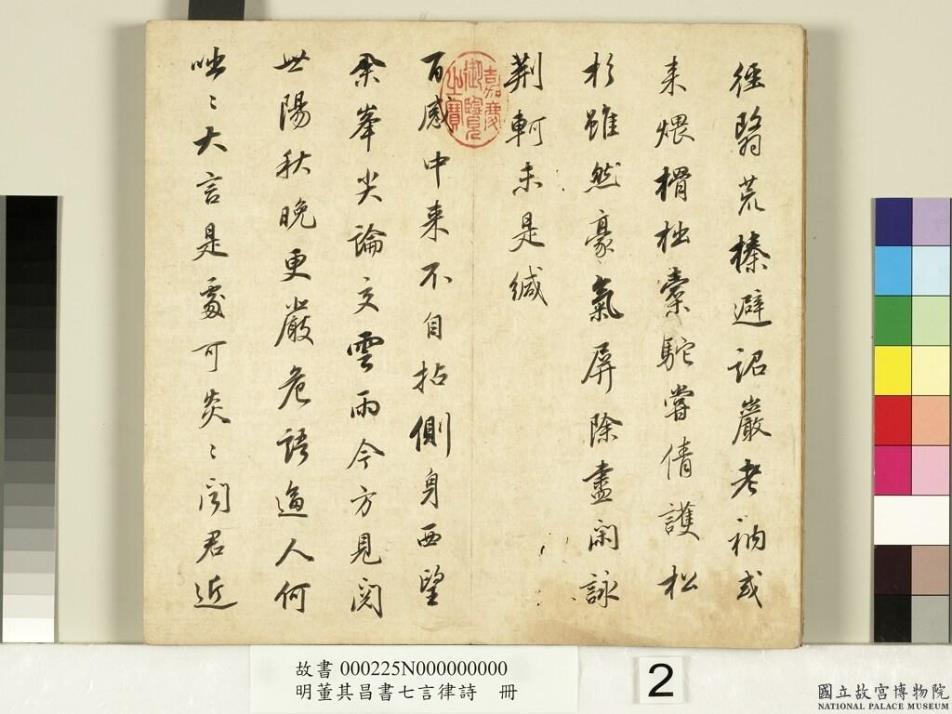 徑翳荒榛避詔巖老衲或
来煨榾柮橐駝嘗倩護松
杉雖然豪氣屏除盡闲詠
荆軻未是緘
百感中来不自拈側身西望
朵峯尖論文雲雨今方見閱
世陽秋晚更嚴危語逼人何
咄〻大言是處可炎〻闻君近
嘉慶御覽之寶
故書 000225N000000000
明董其昌書七言律詩 冊
2
國立故宮博物院
NATIONAL PALACE MUSEUM